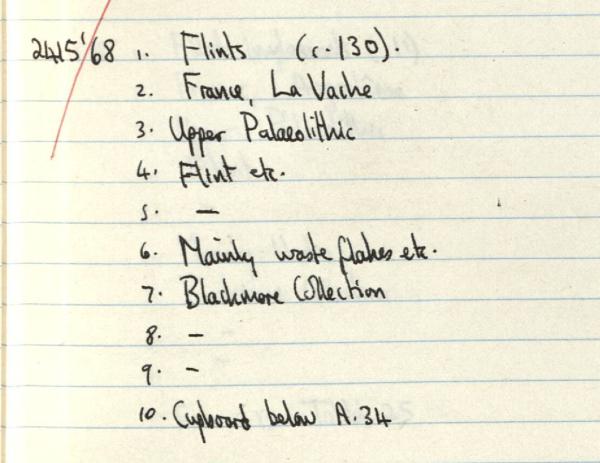 2415'68 1. Flints (c.130).
2. France, La Vache
3. Upper Palaeolithic
4. Flint etc.
5. —
6. Mainly waste flakes etc.
7. Blackmore Collection
8. –
9. –
10. Cupboard below A.34